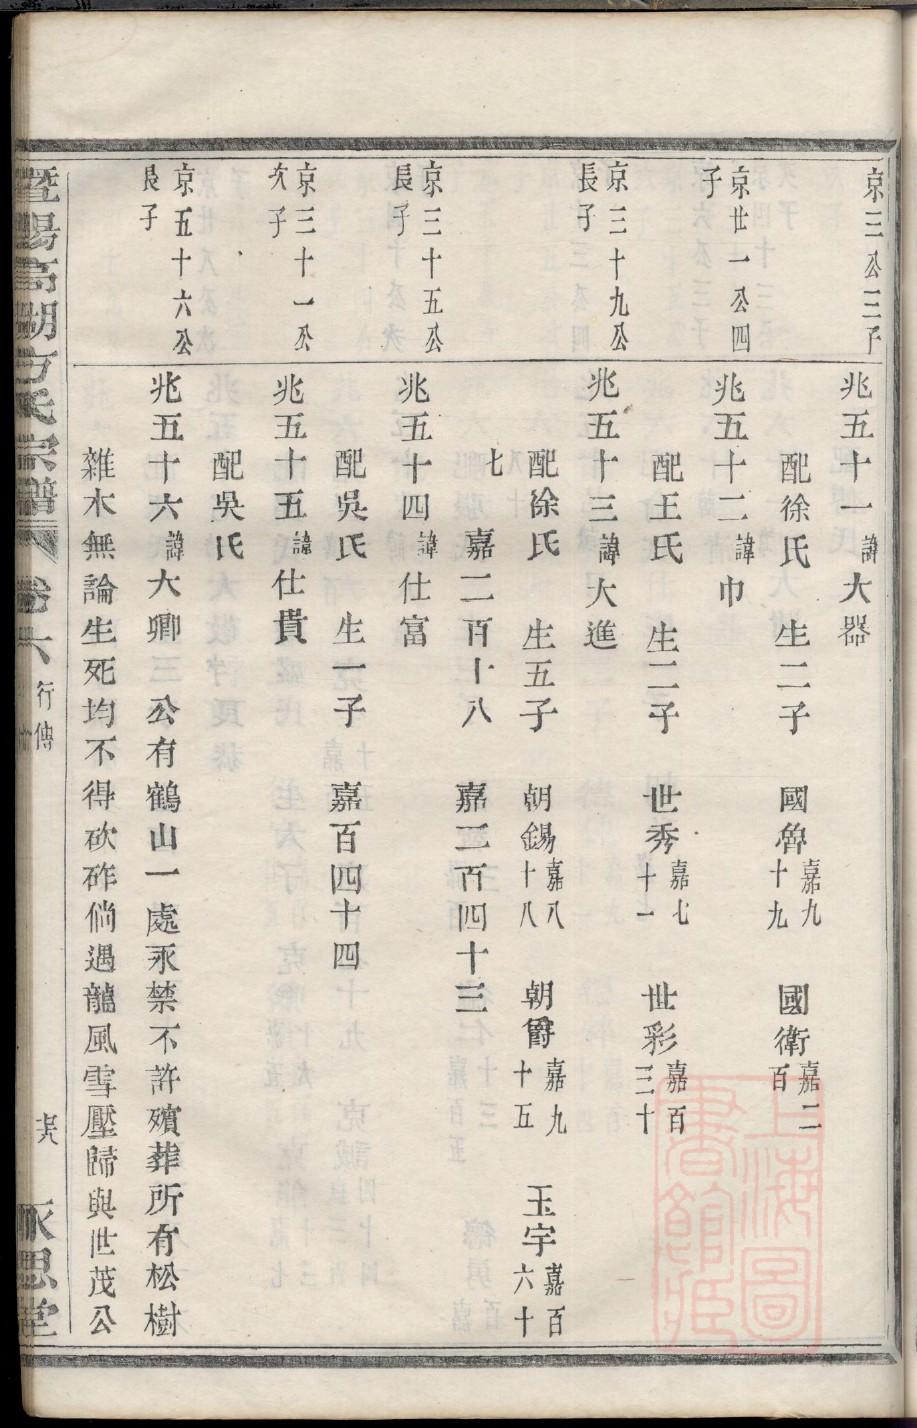 京三公三子
兆五十一諱大器
配徐氏 生二子 國魯嘉九十九 國衛嘉二百
京廿一公四
子
兆五十二諱巾
配王氏 生二子 世秀嘉七十一 世彩嘉百三十
京三十九公
長子
兆五十三諱大進
配徐氏 生五子 朝錫嘉八十八 朝爵嘉九十五 玉宇嘉百六十
七 嘉二百十八 嘉三百四十三
京三十五公
長子
兆五十四諱仕富
配吳氏 生一子 嘉百四十四
京三十一公
次子
兆五十五諱仕貴
配吳氏
京五十六公
長子
兆五十六諱大卿 公有鶴山一處永禁不許殯葬所有松樹
雜木無論生死均不得砍砟倘遇龍風雪壓歸與世茂公
暨陽高湖方氏宗譜 卷六 行傳 永思堂
上海圖
書館藏